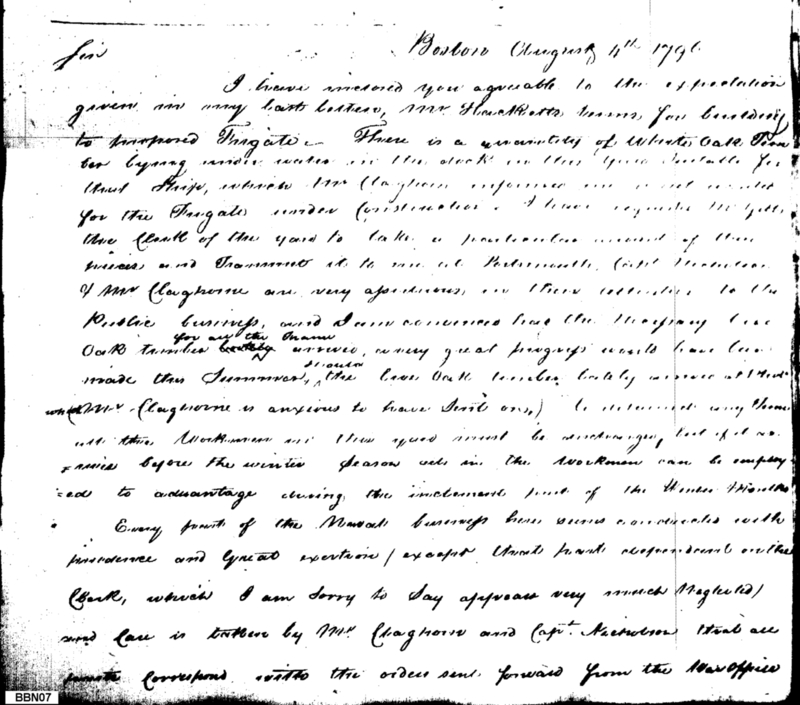 Sir Boston August 4th 1796
I have inclosed you agreeable to the expectation
given in my last letter, Mr Hacketts terms for building
the proposed Frigate. There is a quantity of White Oak Tim
ber lying under water in the dock in this Yard Suitable for
that Ship, which Mr Claghorn informed me
for the Frigate under Construction. I have
the Clerk of the yard to take a particular account of the
pieces and Transmit it to me at Portsmouth. Capt Nicholson
& Mr Claghorne are very assiduous in their attention to the
Public business, and I am convinced had the necessary live
for all the Frame
Oak timber arrived, a very great progress would have been
should
made this Summer, the live Oak timber lately arrived at
which Mr Claghorne is anxious to have Sent on,) be detained any time
all the Workmen in the yard must be discharged, but if it ar
=rives before the winter Season sets in the Workmen can be employ
=ed to advantage during the inclement part of the Winter Months
Every part of the Naval business here seems conducted with
prudence and Great exertion (except that part dependent on the
Clerk, which I am Sorry to Say appears very much Neglected)
and Care is taken by Mr Claghorn and Capt. Nicholson that all
Correspond with the orders sent forward from the War Office
BBN07